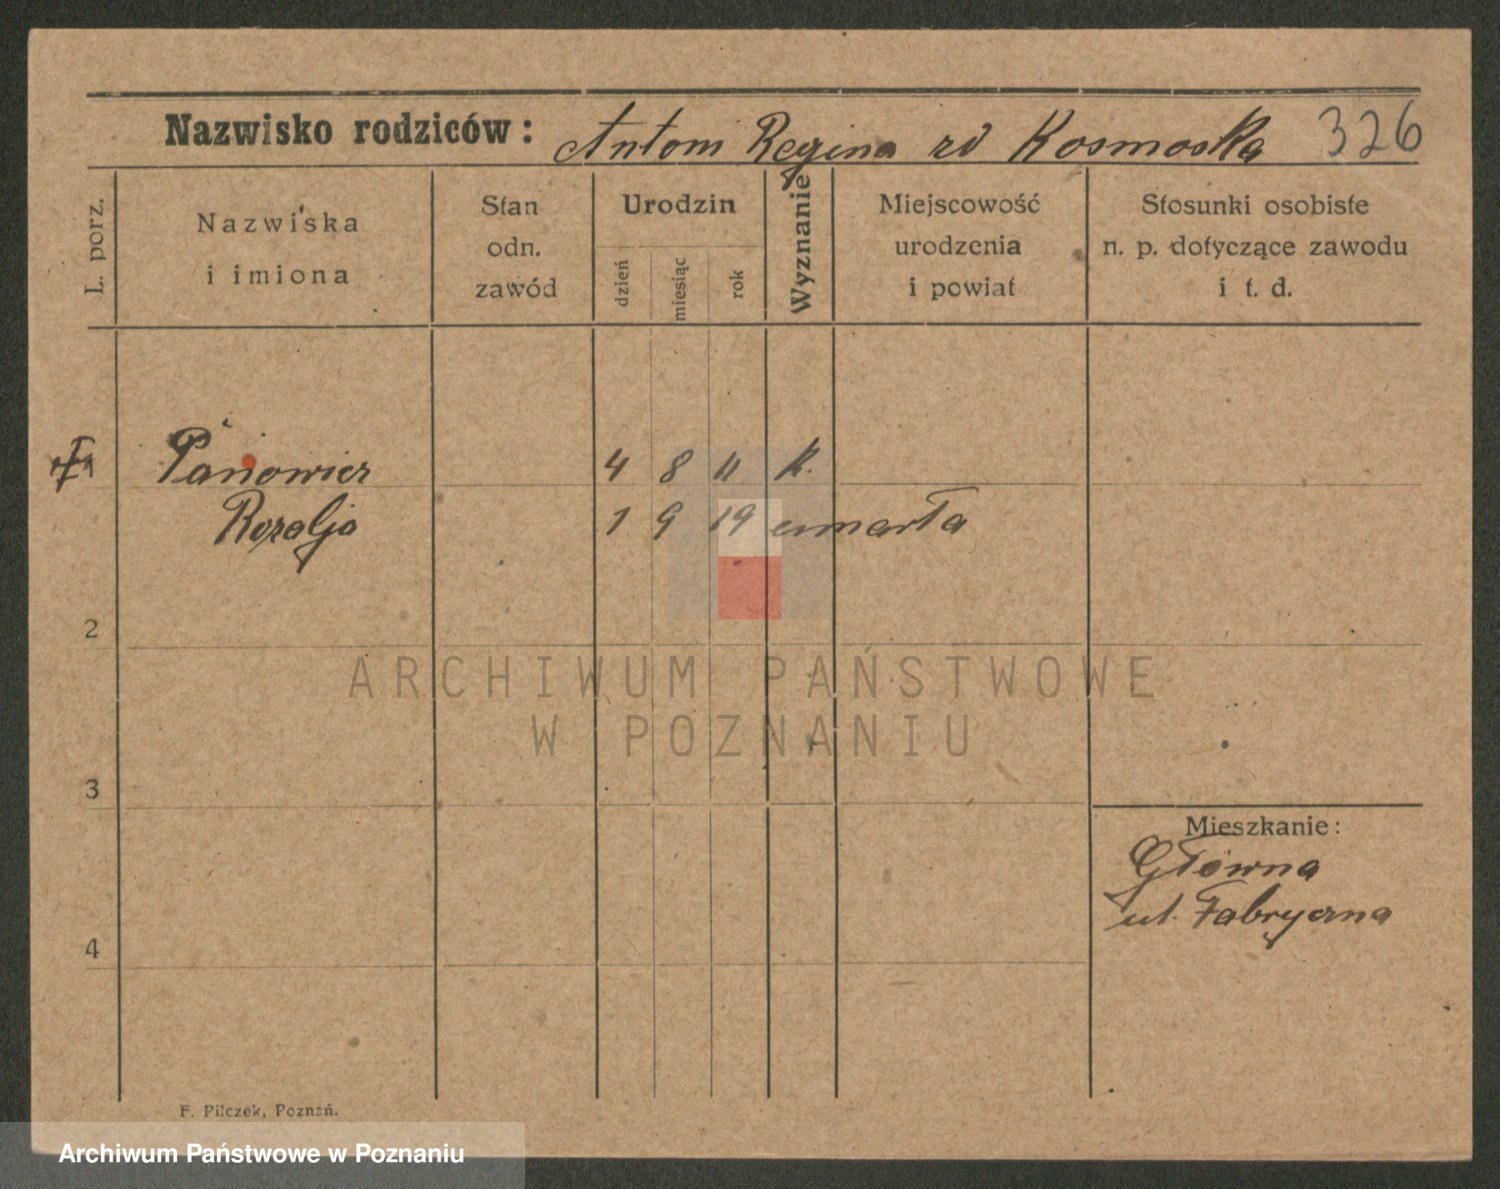 Nazwisko rodziców: Antoni Regina zd Kosmoska 326
L. porz.
Nazwiska
i imiona
Stan
odn.
zawód
Urodzin
dzień
miesiąc
rok
Wyznanie
Miejscowość
urodzenia
i powiat
Stosunki osobiste
n. p. dotyczące zawodu
i t. d.
1 Panowicz 4 8 11 k.
Rozalja 1 9 19 umarła
2
ARCHIWUM PAŃSTWOWE
W POZNANIU
3
Mieszkanie:
Główna
ul. Fabryczna
4
F. Pilczek, Poznań.
Archiwum Państwowe w Poznaniu